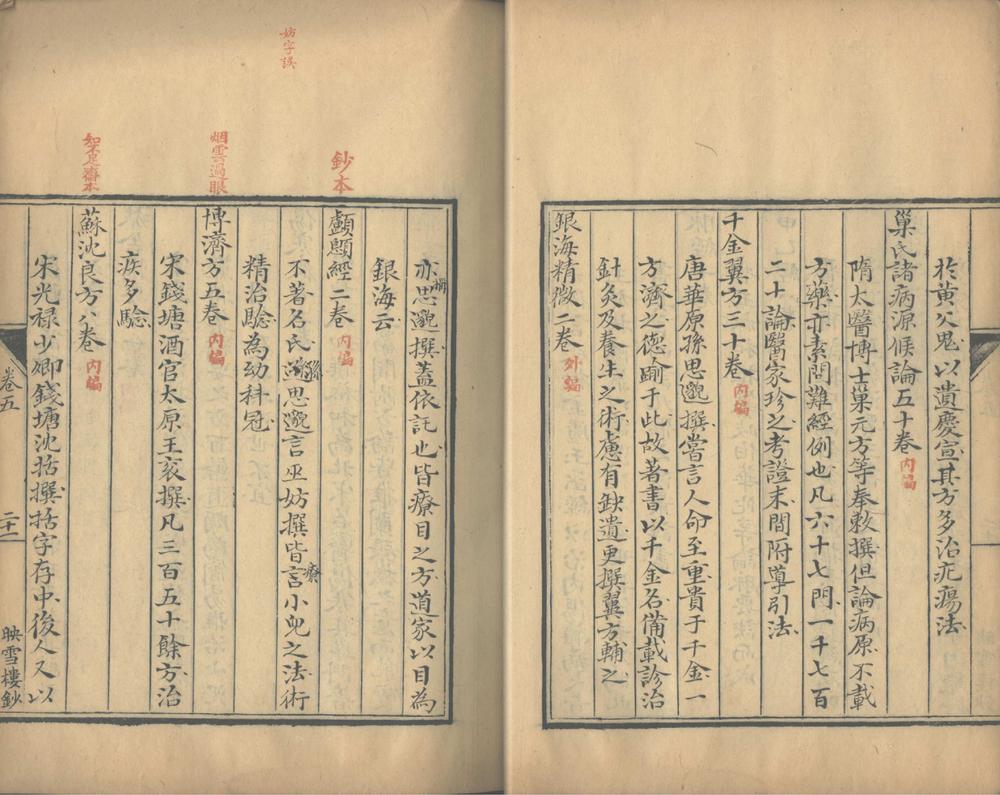 於黄父鬼以遺慶宣其方多治疕瘍法
巢氏諸病源候論五十卷 内編
隋太醫博士巢元方等奉敕撰但論病原不載
方藥亦素問難經例也凡六十七門一千七百
二十論醫家珍之考證末間附導引法
千金翼方三十卷 内編
唐華原孫思邈撰嘗言人命至重貴于千金一
方濟之德踰于此故著書以千金名備載診治
針灸及養生之術慮有缺遺更撰翼方輔之
銀海精微二卷 外編
亦思邈撰蓋依託也皆療目之方道家以目為
銀海云
鈔本
顱顖經二卷 内編
妨字誤
不著名氏孫思邈言巫妨撰皆言療小兒之法術
精治驗為幼科冠
烟雲過眼
博濟方五卷 内編
宋錢塘酒官太原王袞撰凡三百五十餘方治
疾多驗
知不足齋本
蘇沈良方八卷 内編
宋光禄少卿錢塘沈括撰括字存中後人又以
卷五
二十一
映雪樓鈔